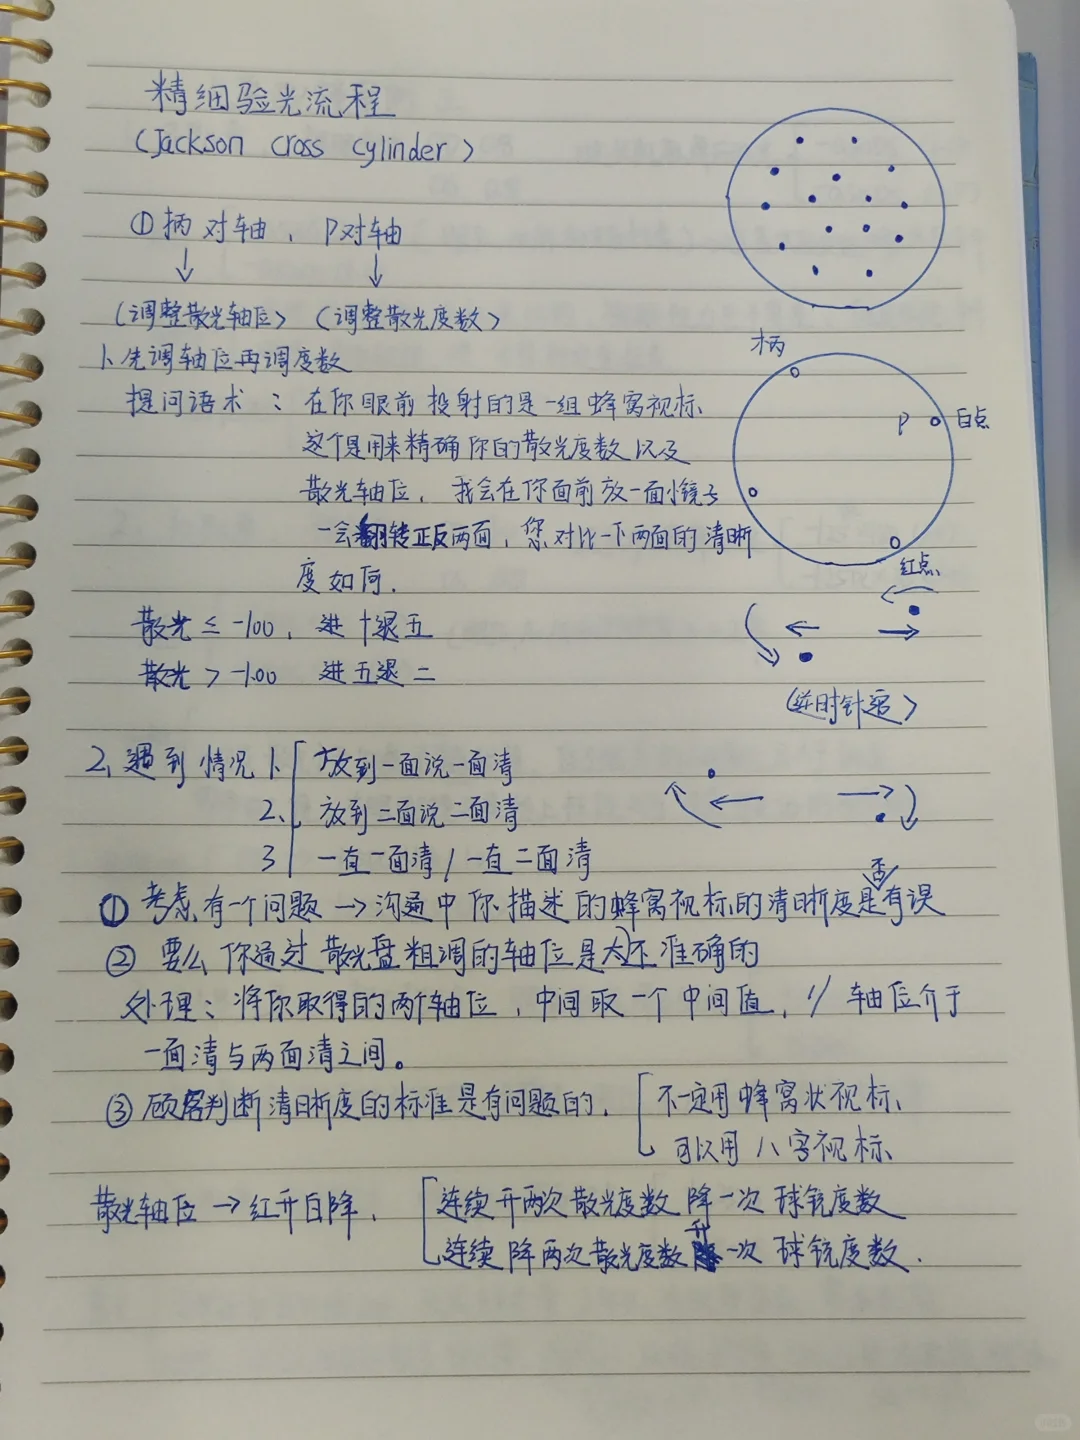 精细验光流程
(Jackson cross cylinder)
①柄对轴、P对轴
(调整散光轴位) (调整散光度数)
1、先调轴位再调度数
提问语术：在你眼前投射的是一组蜂窝视标、
这个是用来精确你的散光度数以及
散光轴位，我会在你面前放一面小镜子
一会翻转正反两面，您对比一下两面的清晰
度如何.
柄
P 白点
红点
散光≤-100、进十退五
散光>-1.00 进五退二
(逆时针)
2、遇到情况 1、放到一面说一面清
2、放到二面说二面清
3 一直一面清/一直二面清
①考虑有一个问题→沟通中你描述的蜂窝视标的清晰度是否有误
②要么你通过散光盘粗调的轴位是不准确的
处理：将你取得的两个轴位，中间取一个中间值，// 轴位介于
一面清与两面清之间。
③顾客判断清晰度的标准是有问题的. 不一定用蜂窝状视标、
可以用八字视标、
散光轴位→红升白降、 连续升两次散光度数降一次球镜度数
连续降两次散光度数升一次球镜度数.